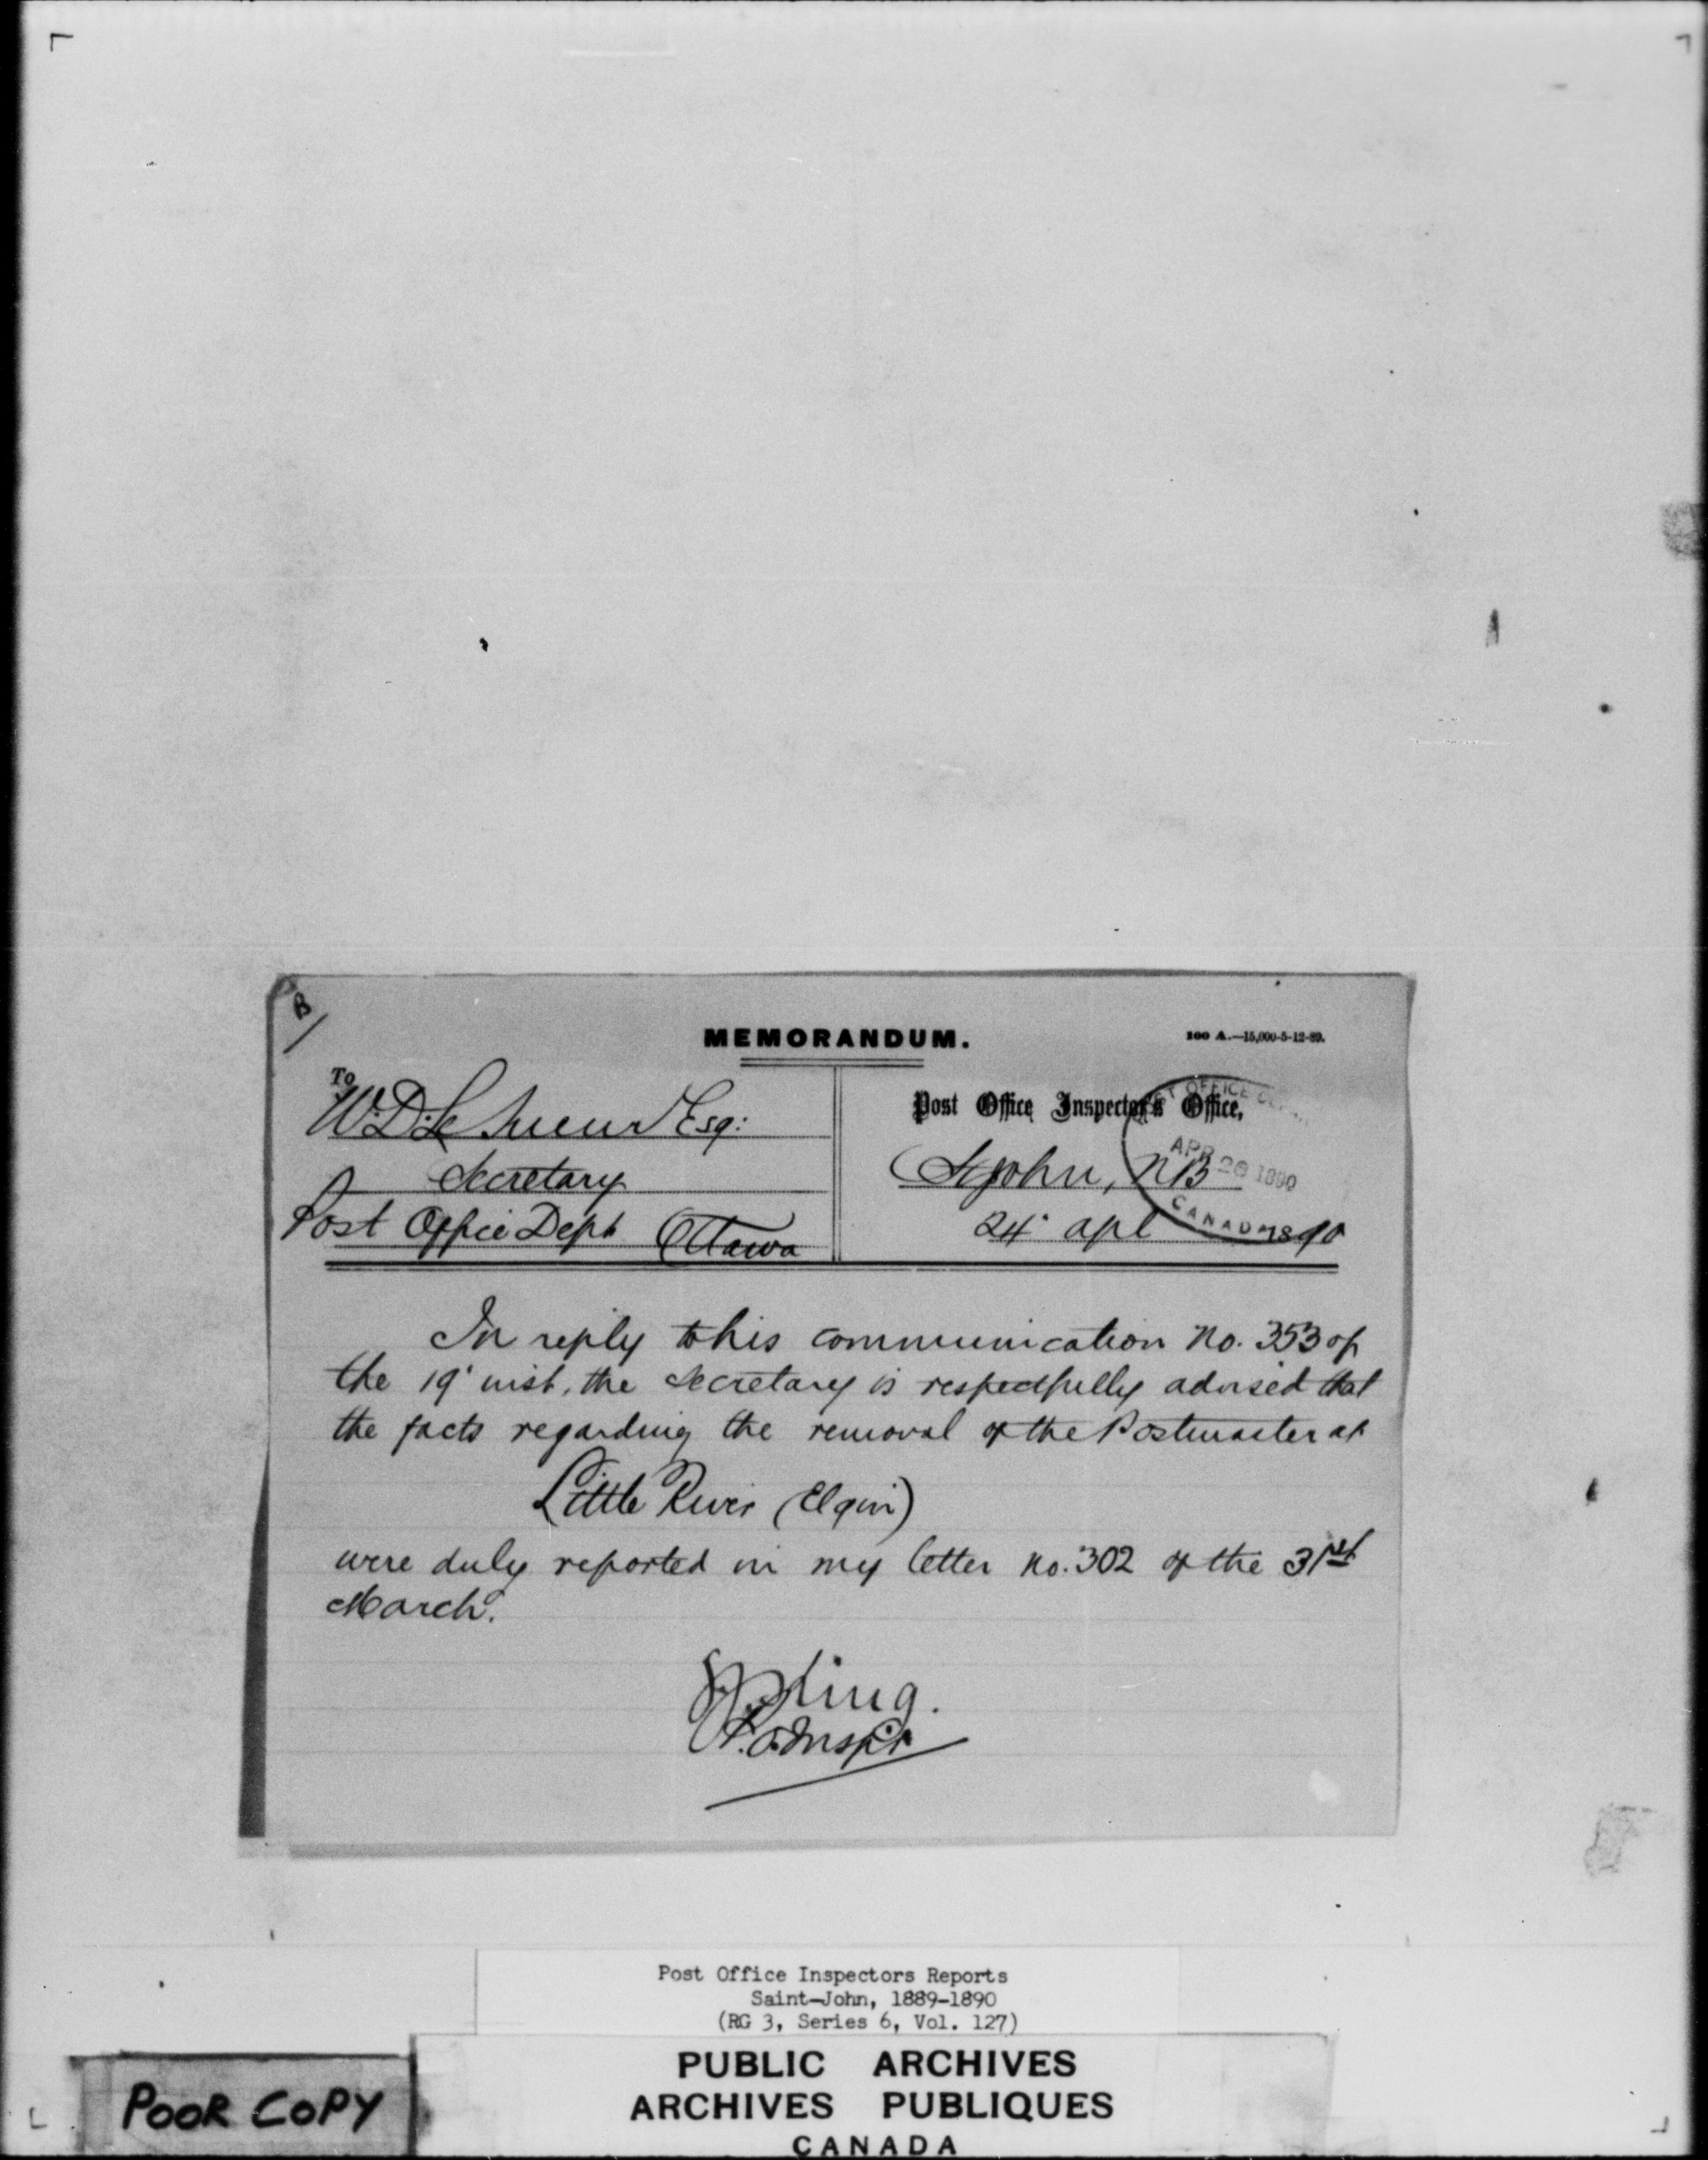 B/
MEMORANDUM.
100 A.—15,000-5-12-89.
To
W. D. Le Sueur Esq:
Secretary
Post Office Dept Ottawa
Post Office Inspector's Office,
St John, NB
24' apl 1890
POST OFFICE
APR 26 1890
CANADA
In reply to his communication No. 353 of
the 19' inst, the Secretary is respectfully advised that
the facts regarding the removal of the Postmaster at
Little River (Elgin)
were duly reported in my letter No. 302 of the 31st
March.
King.
P.O. Inspr
Post Office Inspectors Reports
Saint-John, 1889-1890
(RG 3, Series 6, Vol. 127)
PUBLIC ARCHIVES
ARCHIVES PUBLIQUES
CANADA
POOR COPY